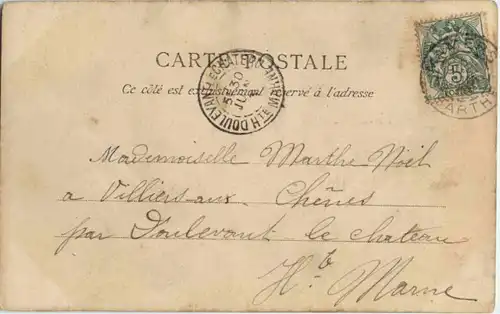 CARTE POSTALE
Ce côté est exclusivement réservé à l'adresse
DOULEVANT-LE-CHATEAU HTE MARNE
5
30
JUIL
5
SARTHE
Mademoiselle Marthe Noël
à Villiers aux Chênes
par Doulevant le chateau
Hte Marne